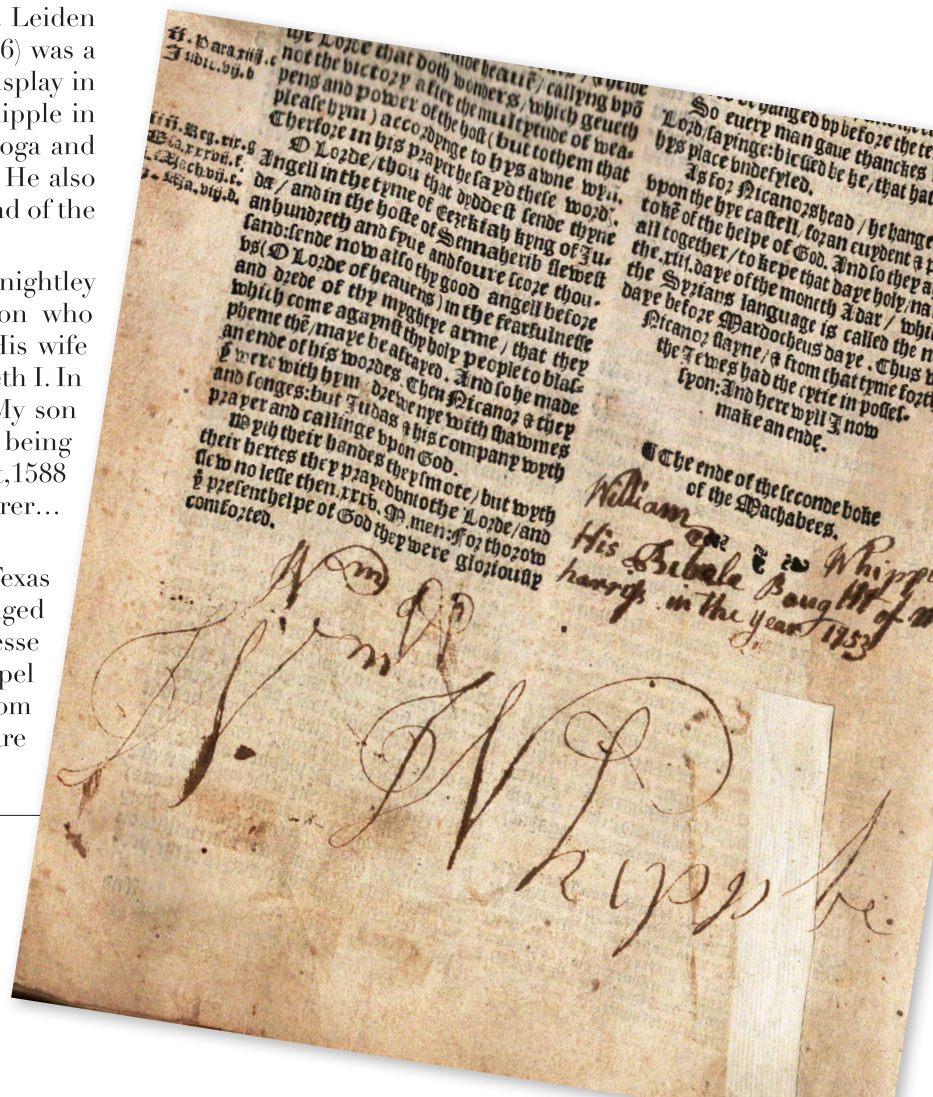 Leiden
6) was a
splay in
ipple in
oga and
He also
nd of the
nightley
on who
His wife
eth I. In
My son
being
t,1588
rer…
Texas
ged
esse
pel
om
are
ij. Para.xiiij.c
Judic.vij.b
iiij.Reg.xix.g
Esa.xxxvij.f.
the Lorde that doth wonders, which geueth
not the victory after the multytude of wea-
pens and power of the host (but to them that
please hym) accordynge to hys awne wyll.
Therfore in his prayer he sayd these wordꝭ.
O Lorde/thou that dyddest sende thyne
Angell in the tyme of Ezekiah kyng of Ju-
da/and in the hoste of Sennaherib slewest
an hundreth and fyue and foure score thou-
sand:sende now also thy good angell before
vs(O Lorde of heauens)in the fearfulnesse
and drede of thy myghtye arme/that they
which come agaynst thy holy people to blas-
pheme thē/maye be afrayed. And so he made
an ende of his wordes. Then Nicanor & they
ẏ were with hym drewe nye with shawmes
and songes:but Judas & his company wyth
prayer and callinge vpon God.
Wyth their handes they smote/but wyth
their hertes they prayed vnto the Lorde/and
slew no lesse then.xxxv.M.men:For thorow
ẏ present helpe of God they were gloriously
comforted.
So euery man gaue thanckes
Lord/sayinge:blessed be he/that hat
hys place vndefyled.
As for Nicanors head/he hange
vpon the hye castell/for an euydent & p
tokē of the helpe of God. And so they a
all together/to kepe that daye holy/na
the.xiij.daye of the moneth Adar/whi
the Syrians language is called the n
daye before Mardocheus daye. Thus w
Nicanor slayne/& from that tyme forth
the Jewes had the cytie in posses-
syon:And here wyll I now
make an ende.
¶ The ende of the seconde boke
of the Machabees.
William Whippl
His Bibale Bought of m
harrys in the year 1753
Wm
Wm W
W. Whipple